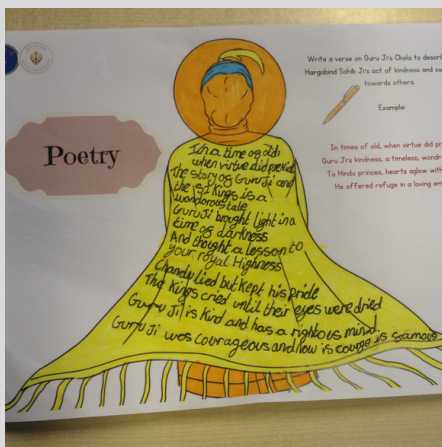 Poetry
Write a verse on Guru Ji's Chola to
Hargobind Sahib Ji's act of kindness and
towards others.
Example:
In times of old, when virtue did
Guru Ji's kindness, a timeless,
To Hindu princes, hearts aglow
He offered refuge in a loving
In a time of old
when virtue did
the story of Guru Ji and
the 52 Kings is a
wonderous tale
Guru Ji brought light in a
time of darkness
And thought a lesson to
your royal Highness
Chandu lied but kept his pride
The Kings cried until their eyes were dried
Guru Ji is kind and has a rightous mind
Guru Ji was courageous and now is is